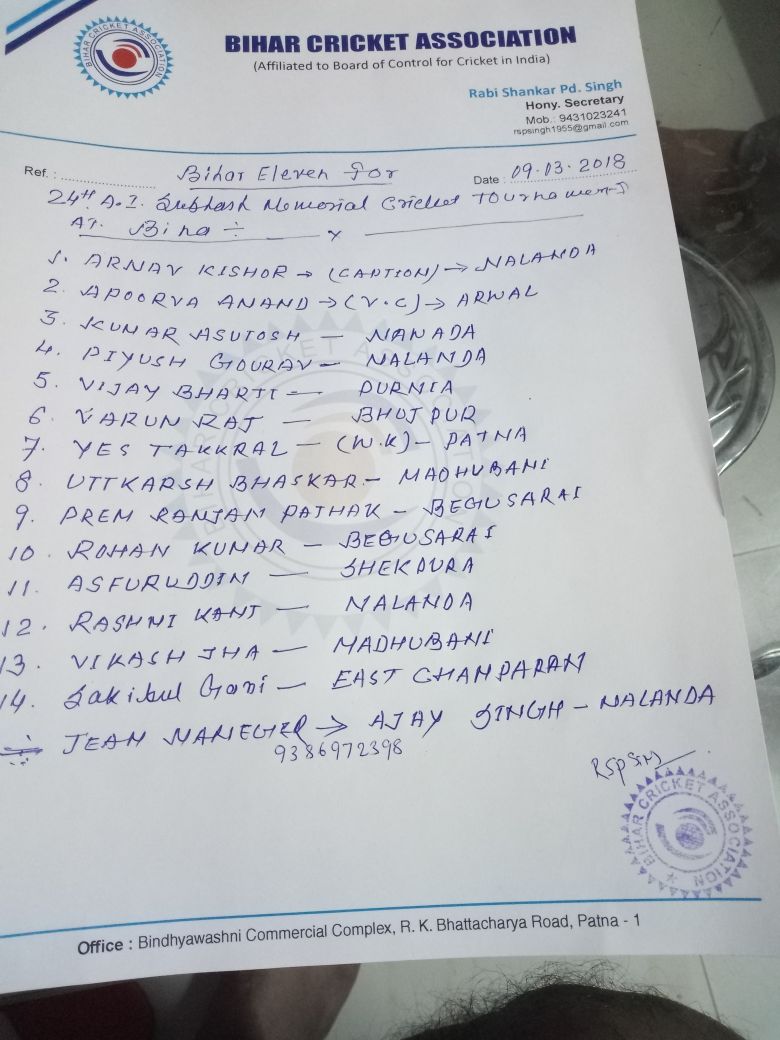 BIHAR CRICKET ASSOCIATION
BIHAR CRICKET ASSOCIATION
(Affiliated to Board of Control for Cricket in India)
Rabi Shankar Pd. Singh
Hony. Secretary
Mob.: 9431023241
rspsingh1955@gmail.com
Ref. : Bihar Eleven For Date : 09.03.2018
24th A.I. Subhash Memorial Cricket Tournament
AT. Bina ÷ x
1. ARNAV KISHOR → (CAPTION) → NALANDA
2. APOORVA ANAND → (V.C) → ARWAL
3. KUMAR ASUTOSH — NANADA
4. PIYUSH GOURAV — NALANDA
5. VIJAY BHARTI — PURNIA
6. VARUN RAJ — BHOJPUR
7. YES TAKKRAL — (W.K) — PATNA
8. UTTKARSH BHASKAR — MADHUBANI
9. PREM RANJAN PATHAK — BEGUSARAI
10. ROHAN KUMAR — BEGUSARAI
11. ASFURUDDIN — SHEKPURA
12. RASHNI KANT — NALANDA
13. VIKASH JHA — MADHUBANI
14. Sakibul Gani — EAST CHAMPARAN
TEAM MANEGER → AJAY SINGH — NALANDA
9386972398
RSPSingh
BIHAR CRICKET ASSOCIATION
Office : Bindhyawashni Commercial Complex, R. K. Bhattacharya Road, Patna - 1